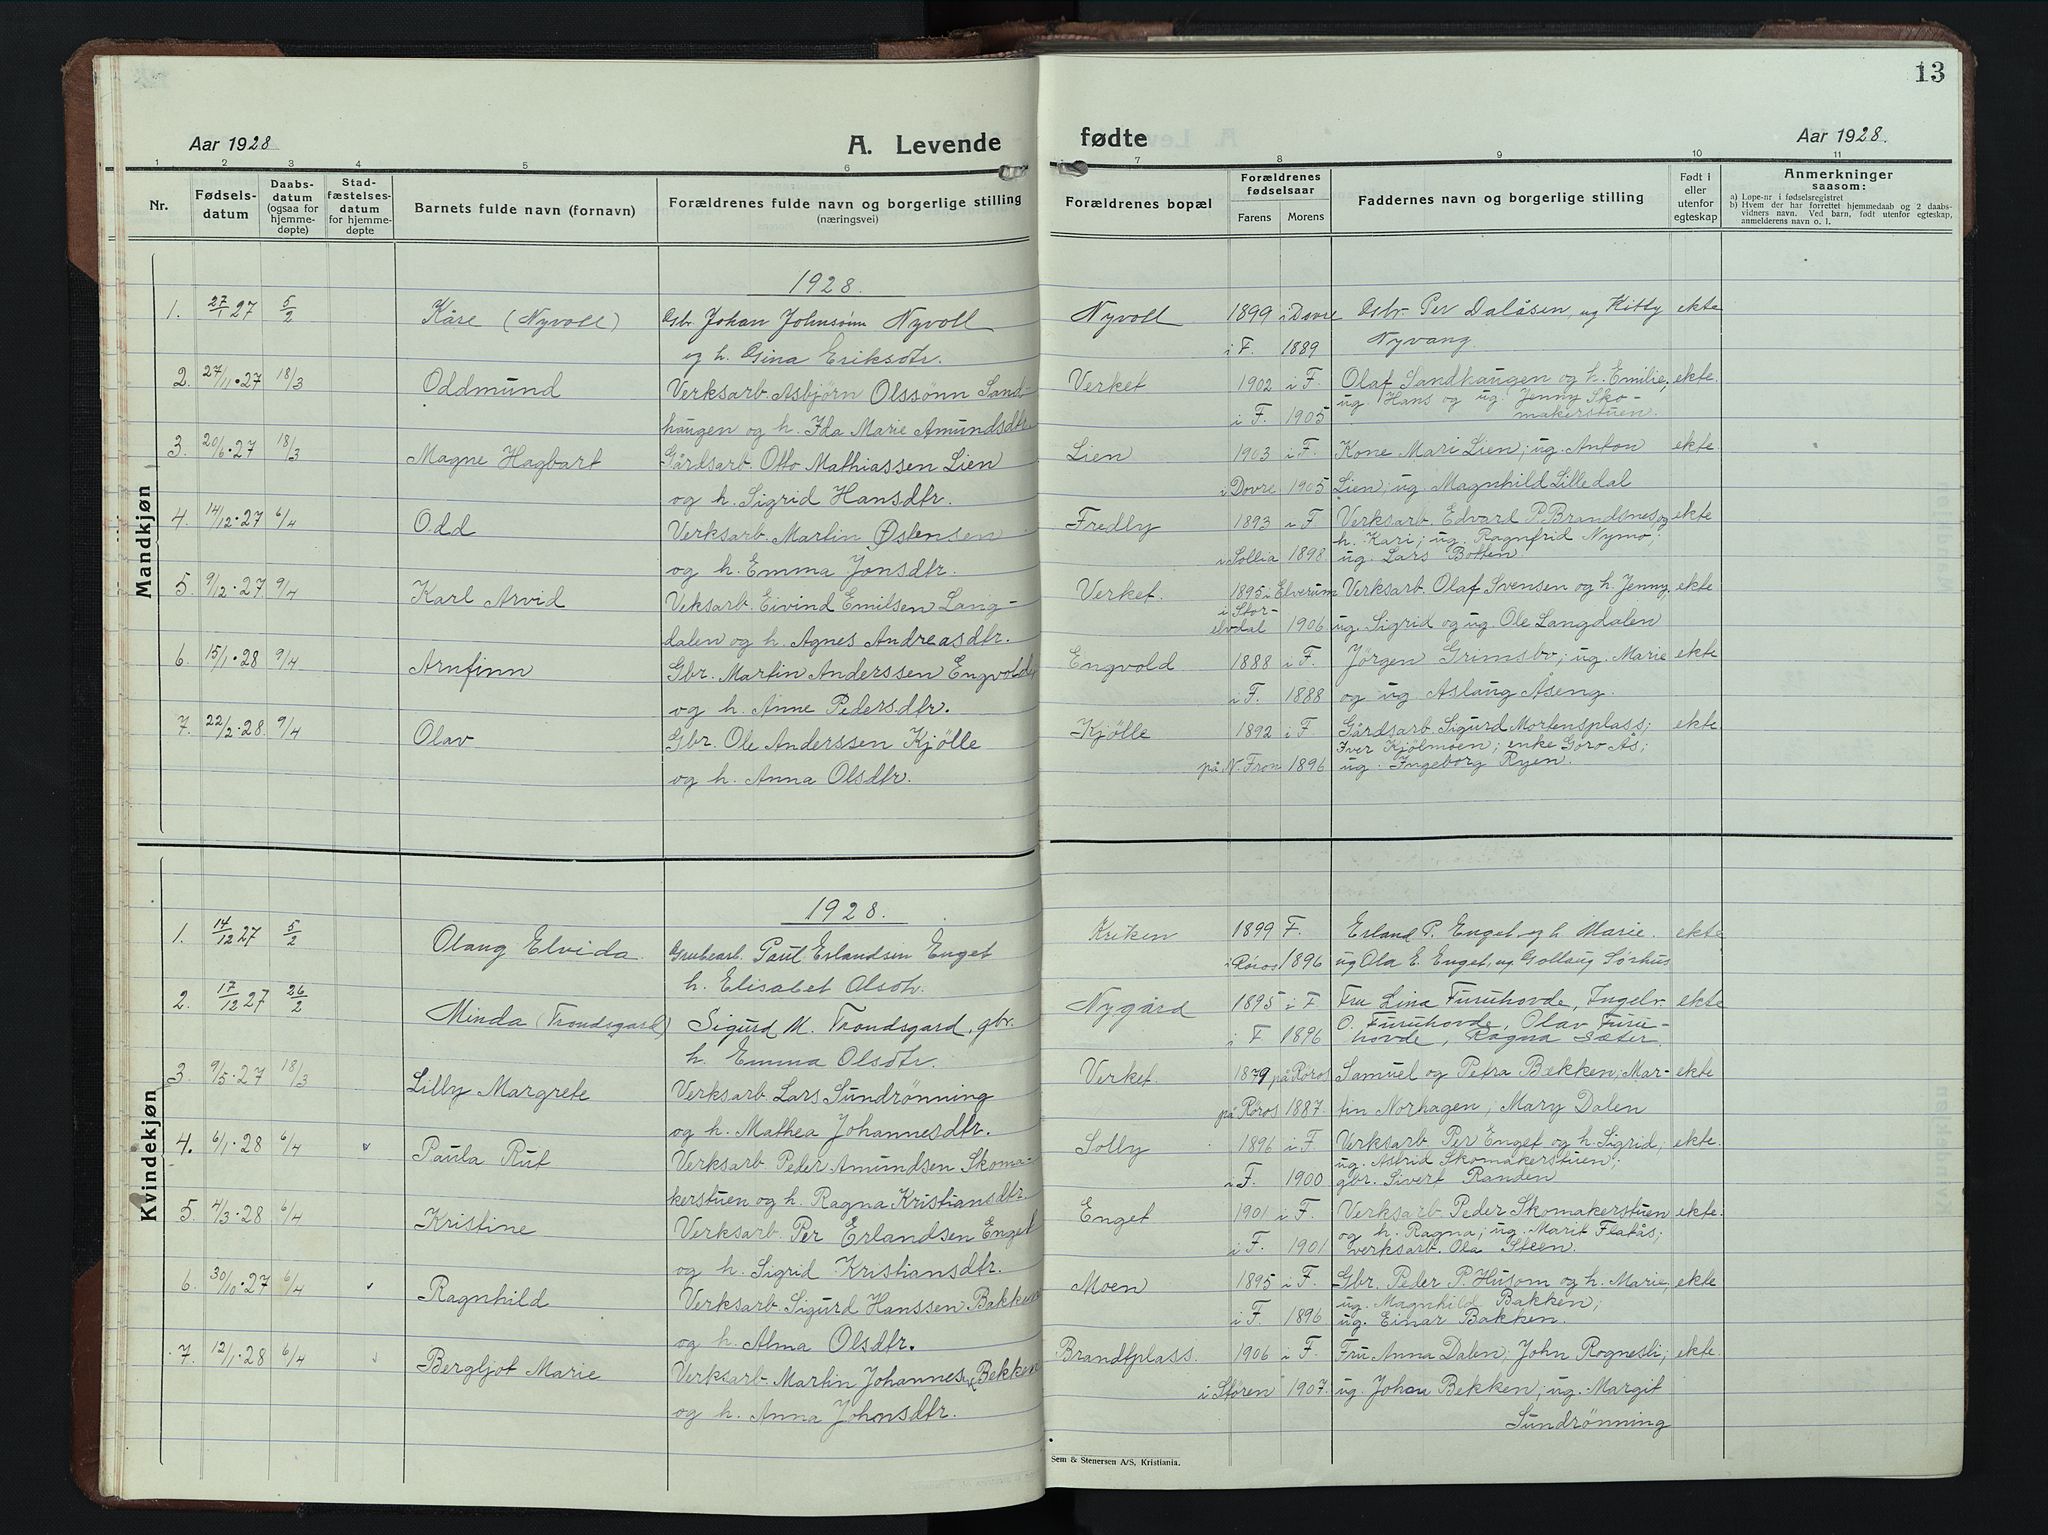 13
Aar 1928
A. Levende
fødte
Aar 1928.
1 2 3 4 5 6 7 8 9 10 11
Nr.
Fødsels-
datum
Daabs-
datum
(ogsaa for
hjemme-
døpte)
Stad-
fæstelses-
datum
for hjemme-
døpte
Barnets fulde navn (fornavn)
Forældrenes fulde navn og borgerlige stilling
(næringsvei)
Forældrenes bopæl
Forældrenes
fødselsaar
Farens Morens
Faddernes navn og borgerlige stilling
Født i
eller
utenfor
egteskap
Anmerkninger
saasom:
a) Løpe-nr i fødselsregistret
b) Hvem der har forrettet hjemmedaab og 2 daabs-
vidners navn. Ved barn, født utenfor egteskap,
anmelderens navn o. l.
Mandkjøn
1928.
1. 27/1 27 5/2 Kåre (Nyvoll) Gbr. Johan Johnsønn Nyvoll Nyvoll 1899 i Dovre Gbr. Per Dalåsen, ug Kitty ekte
og h. Gina Eriksdtr. i F. 1889 Nyvang.
2. 27/11.27 18/3 Oddmund Verksarb. Asbjørn Olssønn Sand- Verket 1902 i F. Olaf Sandhaugen og h. Emilie, ekte.
ug. Hans og ug. Jenny Sko-
haugen og h. Ida Marie Amundsdtr. i F. 1905 makerstuen.
3. 20/6.27 18/3 Magne Hagbart Gårdsarb. Otto Mathiassen Lien Lien 1903 i F. Kone Mari Lien; ug. Anton ekte
og h. Sigrid Hansdtr. i Dovre 1905 Lien; ug. Magnhild Lilledal
4. 14/12.27 6/4 Odd Verksarb. Martin Østensen Fredly 1893 i F Verksarb. Edvard P. Brandsnes og ekte
h. Kari; ug. Ragnfrid Nymo;
og h. Emma Jonsdtr. i Sollia 1898 ug. Lars Botten.
5. 9/12.27 9/4 Karl Arvid Veksarb. Eivind Emilsen Lang- Verket. 1895 i Elverum Verksarb. Olaf Svensen og h. Jenny, ekte
i Stor-
dalen og h. Agnes Andreasdtr. elvdal 1906 ug. Sigrid og ug. Ole Langdalen
6. 15/1.28 9/4 Arnfinn Gbr. Martin Anderssen Engvold Engvold 1888 i F. Jörgen Grimsbo; ug. Marie ekte
og h. Anne Pedersdtr. i F. 1888 og ug Aslaug Åseng.
7. 22/2.28. 9/4 Olav Gbr. Ole Anderssen Kjölle Kjölle 1892 i F Gårdsarb. Sigurd Mortensplass; ekte
Iver Kjölmoen; enke Goro Ås;
og h. Anna Olsdtr. på N. Fron 1896 ug. Ingeborg Ryen.
Kvindekjøn
1928.
1. 14/12 27 5/2 Olaug Elvida. Grubearb. Paul Erlandsen Enget Kriken 1899 F. Erland P. Enget og h Marie. ekte
h. Elisabet Olsdtr. i Røros 1896 ug Ola E. Enget, ug. Gollaug Sørhus
2. 17/12 27 26/2 Minda (Trondsgard) Sigurd M. Trondsgard, gbr. Nygård 1895 i F Fru Lina Furuhovde, Ingebr. ekte
O. Furuhovde, Olav Furu-
h. Emma Olsdtr. i F 1896 hovde, Ragna Sæter.
3. 9/5.27 18/3 Lilly Margrete Verksarb Lars Sundrönning Verket. 1879 på Röros Samuel og Petra Bækken; Mar- ekte
og h. Mathea Johannesdtr. på Röros 1887. tin Norhagen; Mary Dalen
4. 6/1.28 6/4 Paula Rut Verksarb. Peder Amundsen Skoma- Solby 1896 i F. Verksarb. Per Enget og h. Sigrid; ekte.
ug. Astrid Skomakerstuen;
kerstuen og h. Ragna Kristiansdtr. i F. 1900 gbr. Sivert Randen
5. 4/3.28 6/4 Kristine Verksarb. Per Erlandsen Enget Enget 1901 i F. Verksarb. Peder Skomakerstuen ekte.
og h. Ragna; ug. Marit Flatås;
og h. Sigrid Kristiansdtr. i F. 1901 verksarb. Ola Steen.
6. 30/10.27 6/4 Ragnhild Verksarb. Sigurd Hanssen Bakken Moen 1895 i F. Gbr. Peder P. Husom og h. Marie, ekte
ug. Magnhild Bakken;
og h. Alma Olsdtr. i F. 1896 ug. Einar Bakken.
7. 12/1.28 6/4 Bergljot Marie Verksarb. Martin Johannes. Bekken Brandtplass. 1906 i F. Fru Anna Dalen; John Rognesli; ekte.
og h. Anna Johnsdtr. i Stören 1907. ug. Johan Bekken; ug. Margit
Sundrönning
Sem & Stenersen A/S, Kristiania.